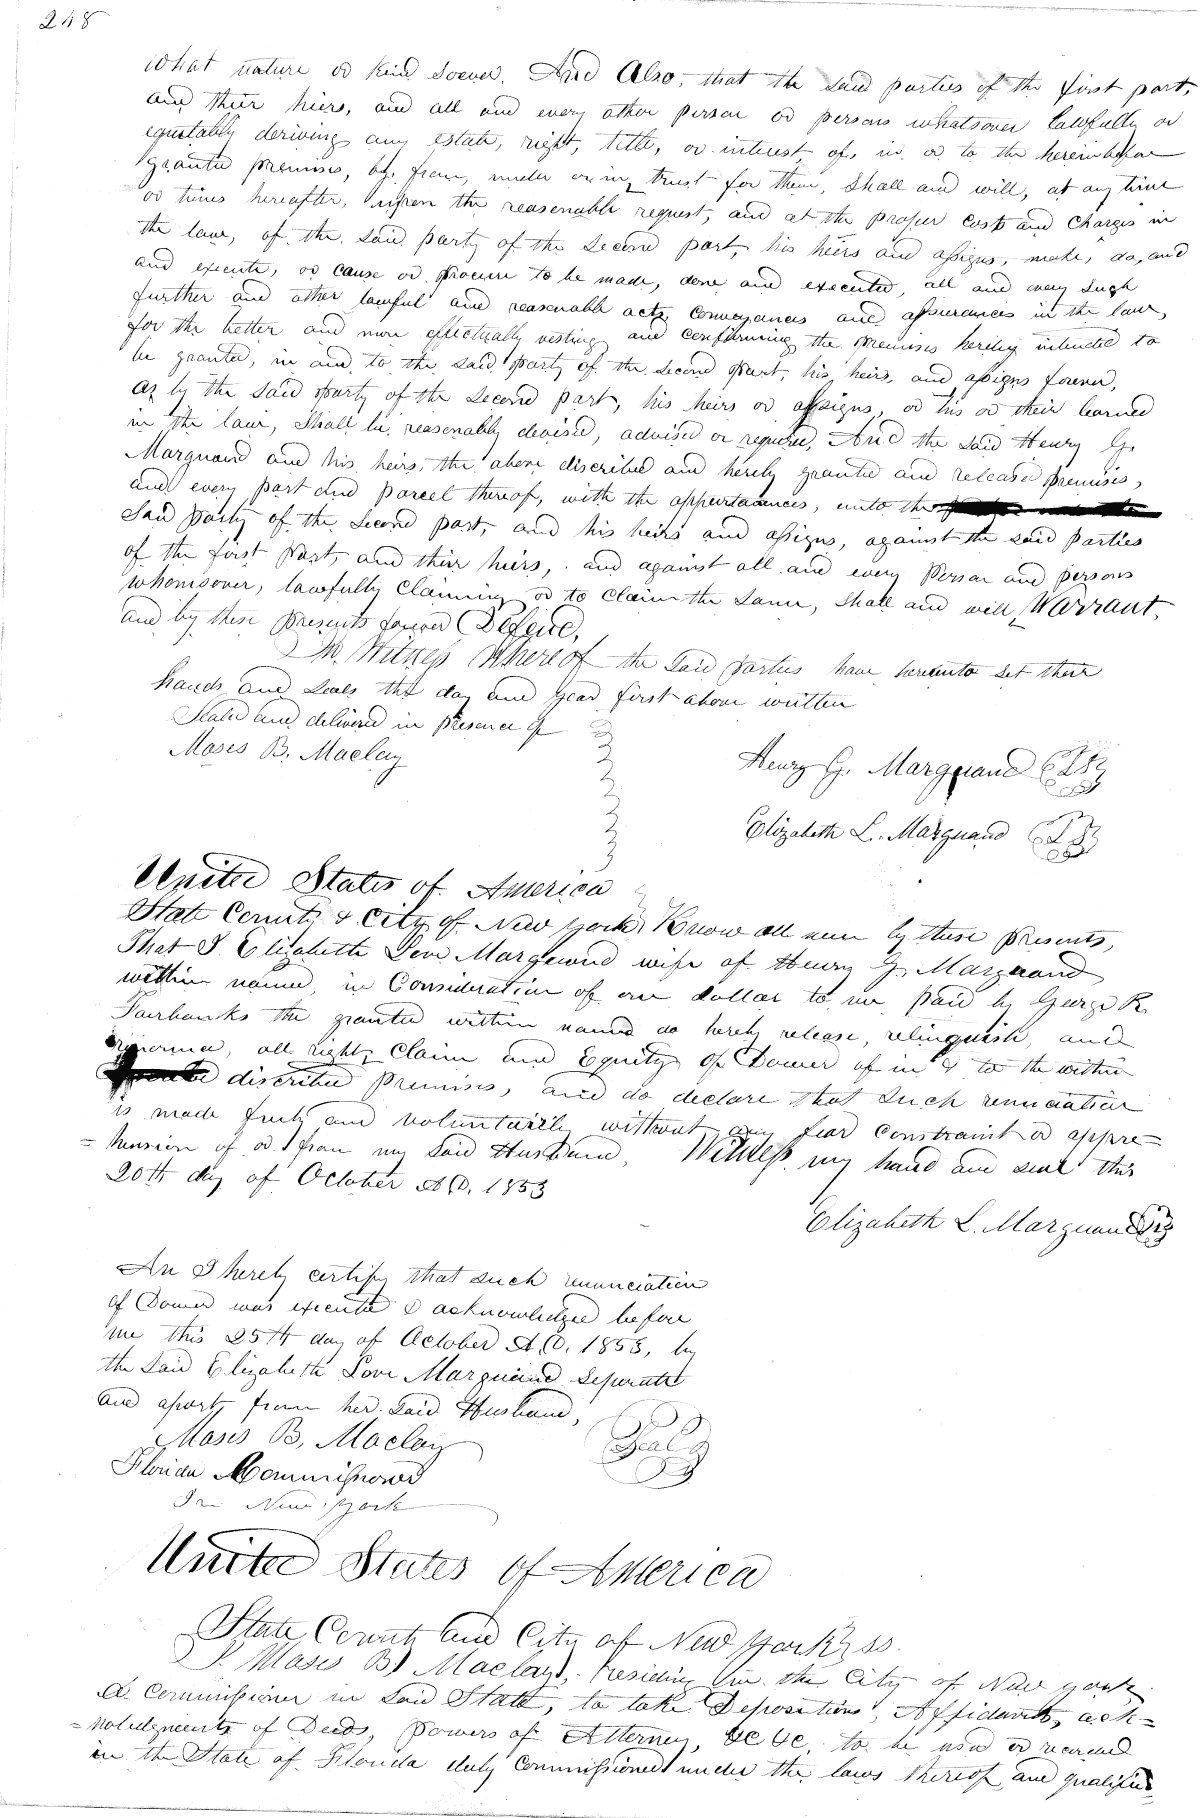 248
what nature or kind soever. And Also, that the said parties of the first part,
and their hiers, and all and every other person or persons whatsover lawfully or
equitably deriving any estate, right, title, or interest, of, in, or to the hereinbefore
granted premises, by, from, under or in trust for them, shall and will, at any time
or times hereafter, upon the reasonable request, and at the proper costs and charges in
the law, of the said party of the second part, his heirs and assigns, make, do, and
and execute, or cause or procure to be made, done and executed, all and every such
further and other lawful and reasonable acts, conveyances and assurances in the law,
for the better and more effectually vesting and confirming the premises hereby intended to
be granted, in and to the said party of the second part, his heirs, and assigns forever,
as by the said party of the second part, his heirs or assigns, or his or their learned
in the law, shall be reasonably devised, advised or required, And the said Henry G.
Marquand and his heirs, the above discribed and hereby granted and released premises,
and every part and parcel thereof, with the appurtanances, unto the
said party of the second part, and his heirs and assigns, against the said parties
of the first part, and their heirs, and against all and every person and persons
whomsover, lawfully claiming or to claim the same, shall and will, Warrant,
and by these presents forever Defend,
In Witness Whereof the said parties have hereunto set their
hands and seals the day and year first above written
Sealed and delivered in presence of
Moses B. Maclay
Henry G. Marquand LS
Elizabeth L. Marquand LS
United States of America
State County & City of New York, Know all men by these presents,
That I Elizabeth Love Marquand wife of Henry G. Marquand
within named, in Consideration of one dollar to me paid by George R.
Fairbanks the grantee within named do hereby release, relinquish, and
renounce, all right, claim and Equity of Dower of in & to the within
discribed premises, and do declare that such renunciation
is made freely and voluntarily without any fear constraint or appre=
=hension of or from my said Husband, Witness my hand and seal this
20th day of October A.D. 1853
Elizabeth L. Marquand LS
An I hereby certify that such renunciation
of Dower was executed & acknowledged before
me this 25th day of October A.D. 1853, by
the said Elizabeth Love Marquand separate
and apart, from her said Husband,
Moses B. Maclay
Seal
Florida Commissioner
In New York
United States of America
State County and City of New York ss.
I Moses B. Maclay, residing in the City of New York,
a commissioner in said State, to take Depositions, Affidavits, ack=
=noledgments of Deeds, powers of Attorney, &c &c, to be used or recorded
in the State of Florida duly commissioned under the laws thereof and qualified